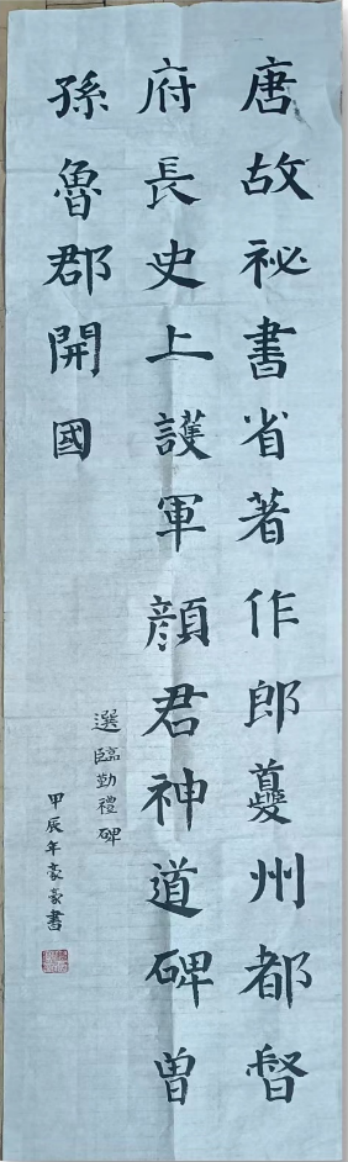 唐故祕書省著作郎夔州都督
府長史上護軍顔君神道碑曽
孫魯郡開國
選臨勤禮碑
甲辰年豪豪書